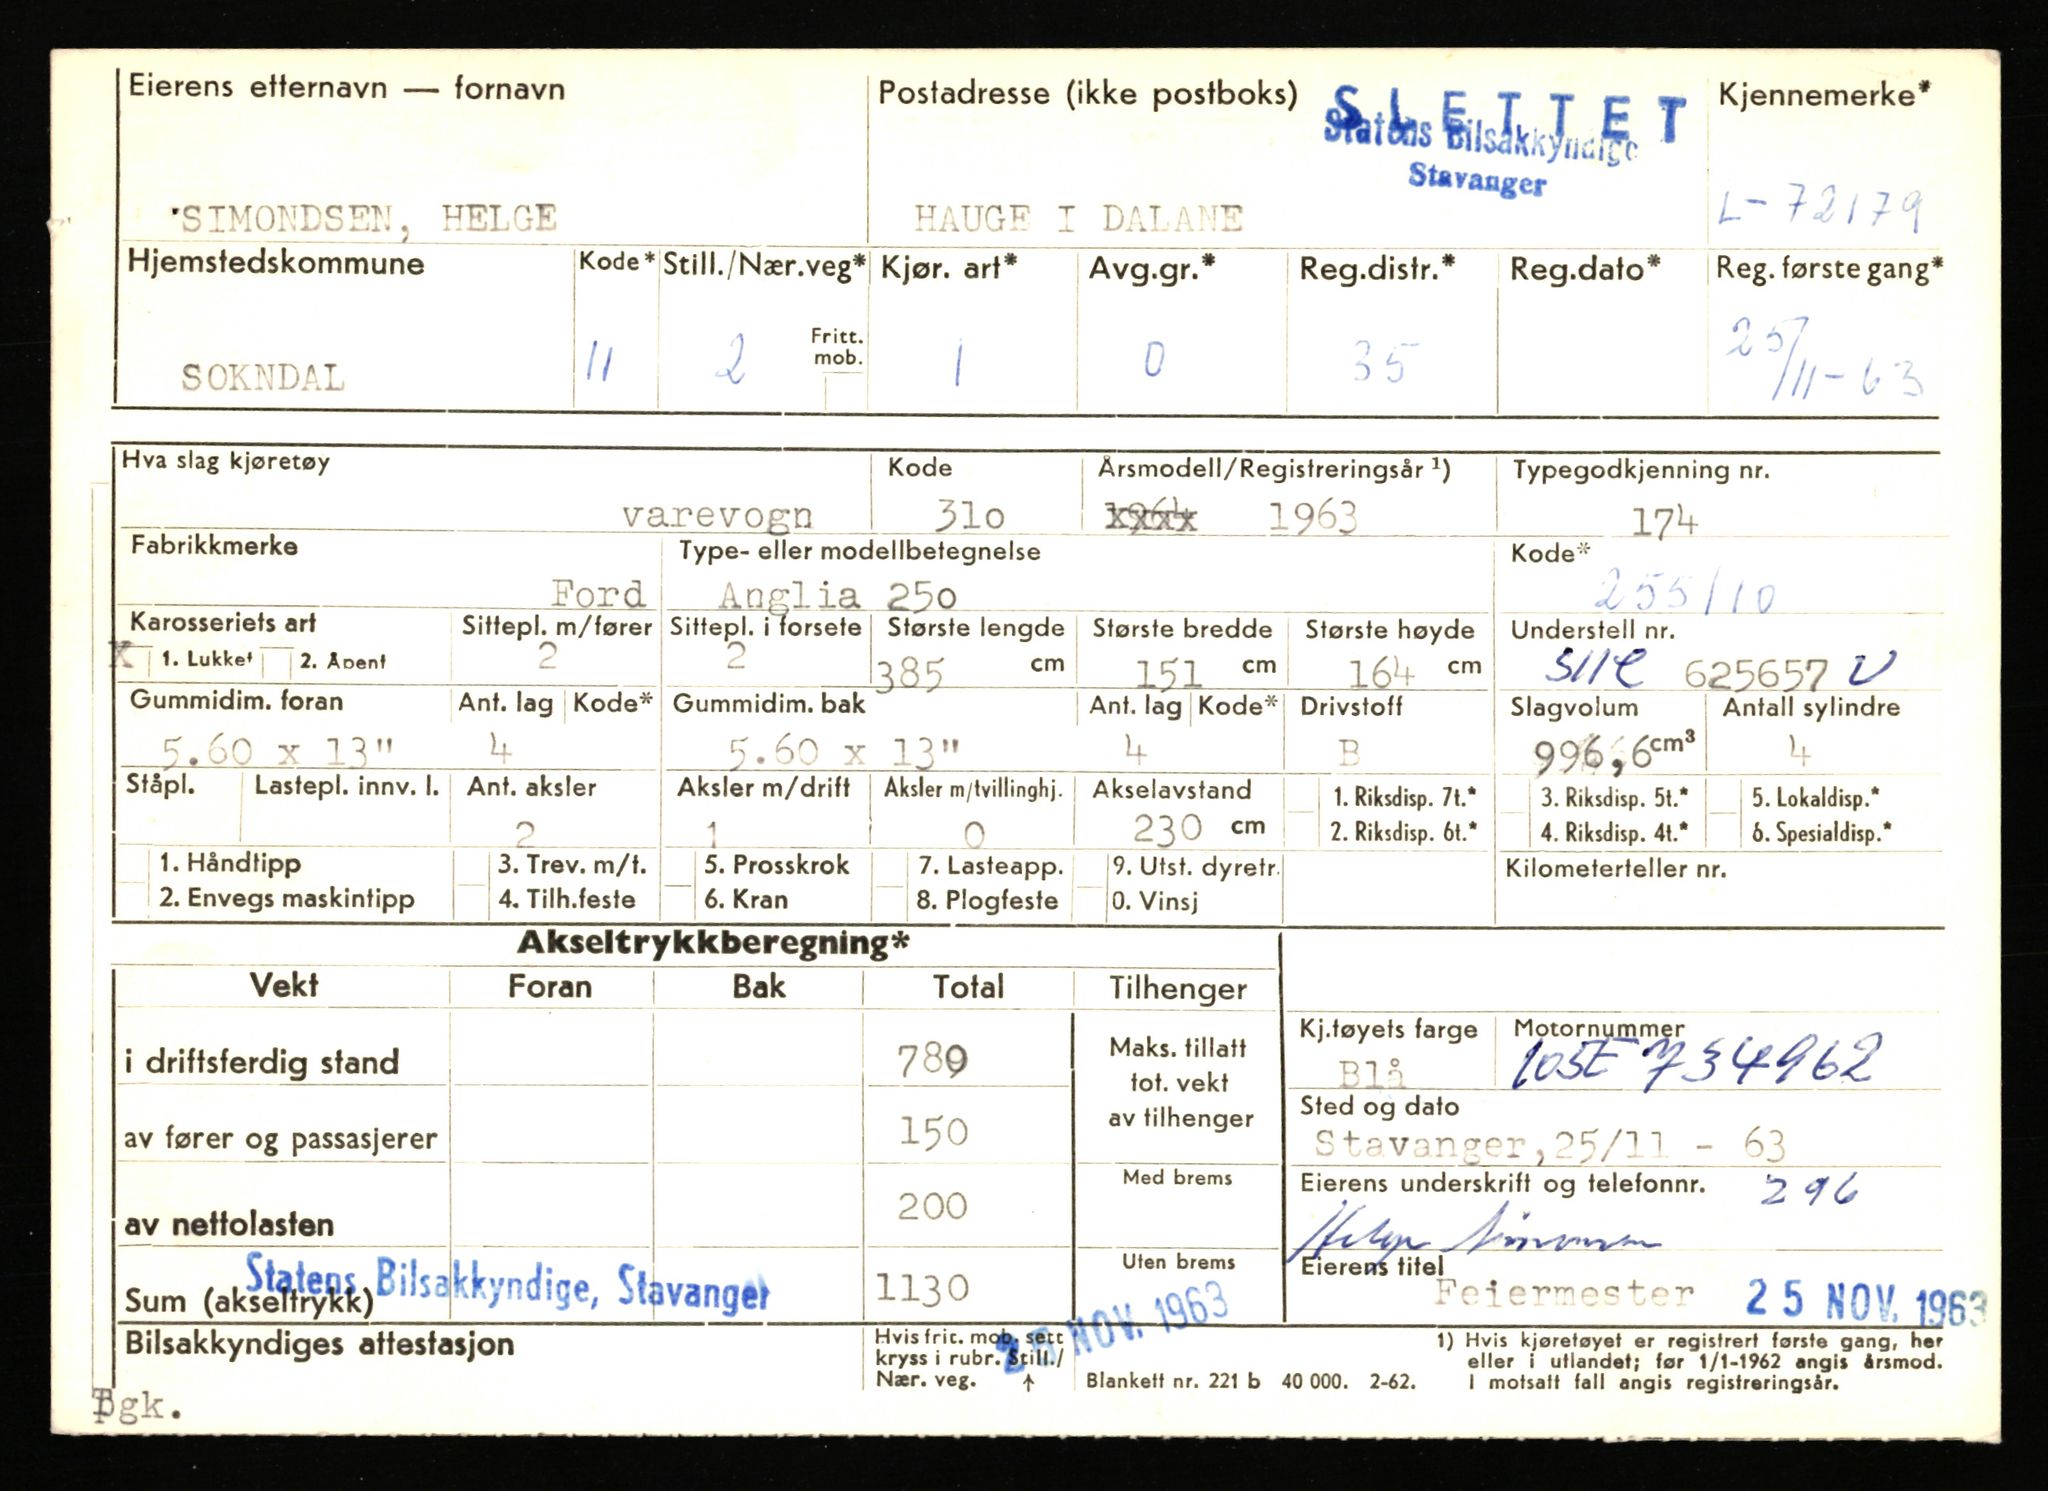 Eierens etternavn — fornavn Postadresse (ikke postboks) SLETTET Kjennemerke*
Statens Bilsakkyndige
Stavanger
SIMONDSEN, HELGE HAUGE I DALANE L-72179
Hjemstedskommune Kode* Still./Nær.veg* Kjør. art* Avg.gr.* Reg.distr.* Reg.dato* Reg. første gang*
Fritt. mob.
SOKNDAL 11 2 1 0 35 25/11-63
Hva slag kjøretøy Kode Årsmodell/Registreringsår ¹) Typegodkjenning nr.
varevogn 310 1964 1963 174
Fabrikkmerke Type- eller modellbetegnelse Kode*
Ford Anglia 250 255/10
Karosseriets art Sittepl. m/fører Sittepl. i forsete Største lengde Største bredde Største høyde Understell nr.
X 1. Lukket 2. Åpent 2 2 385 cm 151 cm 164 cm 625657
Gummidim. foran Ant. lag Kode* Gummidim. bak Ant. lag Kode* Drivstoff Slagvolum Antall sylindre
5.60 x 13" 4 5.60 x 13" 4 B 996,6 cm³ 4
Ståpl. Lastepl. innv. l. Ant. aksler Aksler m/drift Aksler m/tvillinghj. Akselavstand 1. Riksdisp. 7t.* 3. Riksdisp. 5t.* 5. Lokaldisp.*
2 1 0 230 cm 2. Riksdisp. 6t.* 4. Riksdisp. 4t.* 6. Spesialdisp.*
1. Håndtipp 3. Trev. m/t. 5. Prosskrok 7. Lasteapp. 9. Utst. dyretr. Kilometerteller nr.
2. Envegs maskintipp 4. Tilh.feste 6. Kran 8. Plogfeste 0. Vinsj
Akseltrykkberegning*
Vekt Foran Bak Total Tilhenger
Kj.tøyets farge Motornummer
i driftsferdig stand 789 Maks. tillatt tot. vekt av tilhenger Blå 105E 734962
Sted og dato
av fører og passasjerer 150 Stavanger, 25/11 - 63
Med brems Eierens underskrift og telefonnr. 296
av nettolasten 200
Statens Bilsakkyndige, Stavanger Uten brems Eierens titel
Sum (akseltrykk) 1130 Feiermester 25 NOV. 1963
NOV. 1963
Bilsakkyndiges attestasjon Hvis fric. mob. sett kryss i rubr. Still./ Nær. veg. ↑ Blankett nr. 221 b 40 000. 2-62.
1) Hvis kjøretøyet er registrert første gang, her
eller i utlandet; før 1/1-1962 angis årsmod.
I motsatt fall angis registreringsår.
gk.